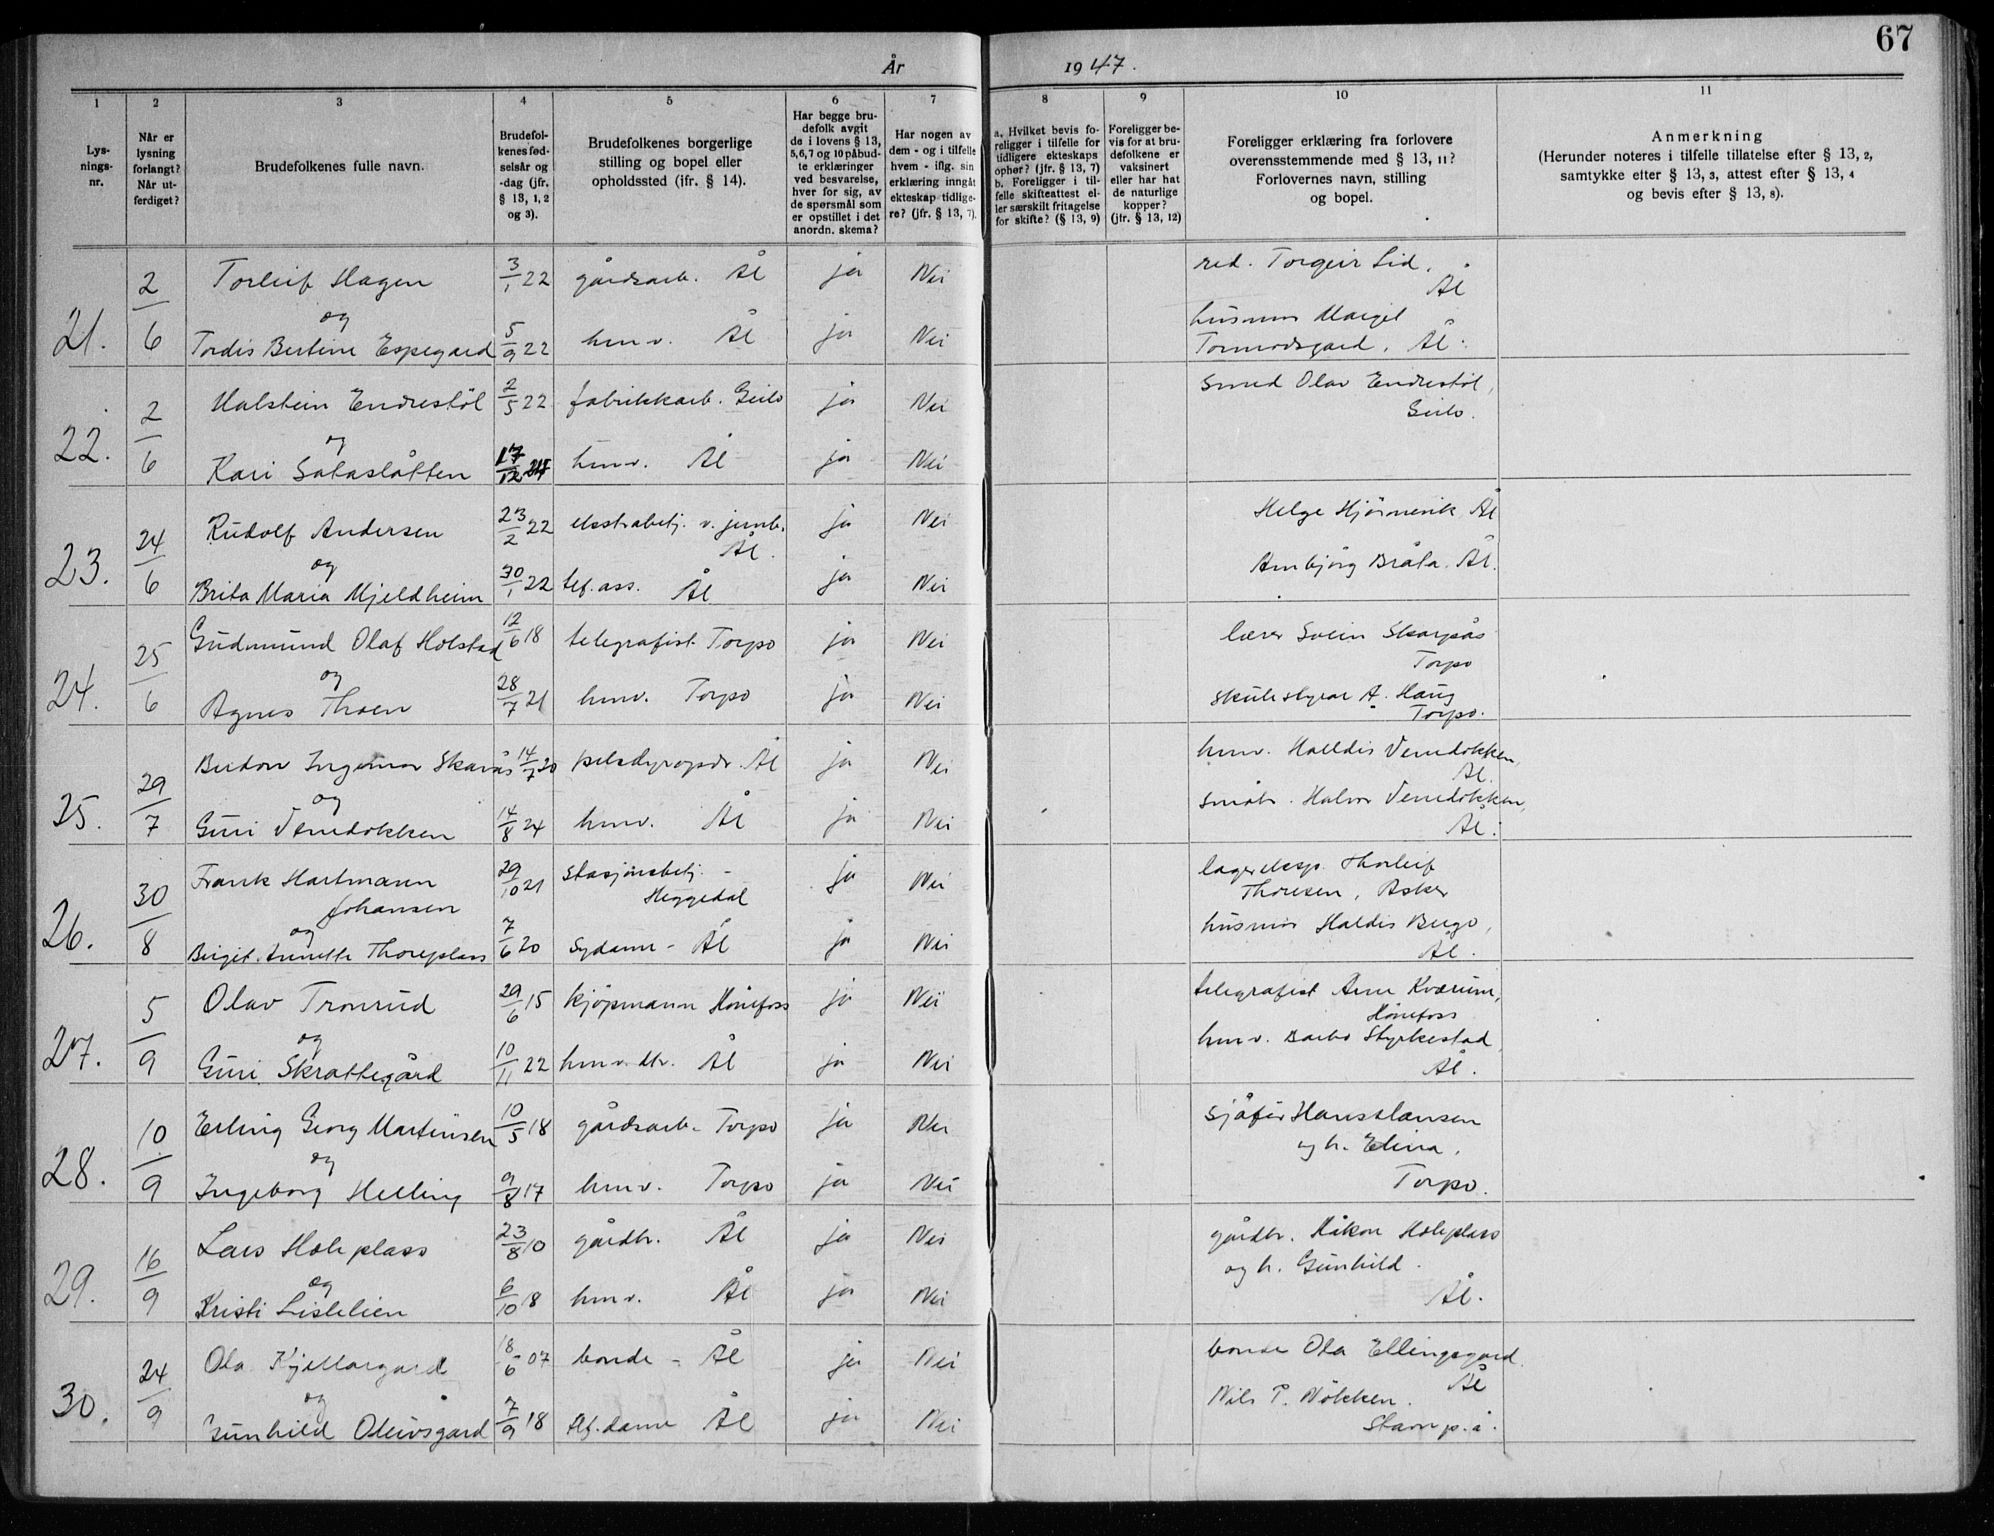 67
År 1947.
1 2 3 4 5 6 7 8 9 10 11
Lysnings-
nr.
Når er
lysning
forlangt?
Når ut-
ferdiget?
Brudefolkenes fulle navn.
Brudefol-
kenes fød-
selsår og
-dag (jfr.
§ 13, 1, 2
og 3).
Brudefolkenes borgerlige
stilling og bopel eller
opholdssted (jfr. § 14).
Har begge bru-
defolk avgit
de i lovens § 13,
5, 6, 7 og 10 påbud-
te erklæringer
ved besvarelse,
hver for sig, av
de spørsmål som
er opstillet i det
anordn. skema?
Har nogen av
dem - og i tilfelle
hvem - iflg. sin
erklæring inngåt
ekteskap tidlige-
re? (jfr. § 13, 7).
a. Hvilket bevis fo-
religger i tilfelle for
tidligere ekteskaps
ophør? (jfr. § 13, 7)
b. Foreligger i til-
felle skifteattest el-
ler særskilt fritagelse
for skifte? (§ 13, 9)
Foreligger be-
vis for at bru-
defolkene er
vaksinert
eller har hat
de naturlige
kopper?
(jfr. § 13, 12)
Foreligger erklæring fra forlovere
overensstemmende med § 13, 11?
Forlovernes navn, stilling
og bopel.
Anmerkning
(Herunder noteres i tilfelle tillatelse efter § 13, 2,
samtykke efter § 13, 3, attest efter § 13, 4
og bevis efter § 13, 8).
21. 2/6 Torleif Hagen 3/1 22 gårdsarb. Ål ja Nei red. Torgeir Lid, Ål
og
Tordis Bertine Espegard 5/9 22 hmv. Ål ja Nei husmor Margit
Tormodsgard, Ål.
22. 2/6 Halstein Endrestöl 2/5 22 fabrikkarb. Geilo ja Nei Smed Olav Endrestöl,
Geilo.
og
Kari Sataslåtten 17/12 hmv. Ål ja Nei
23. 24/6 Rudolf Andersen 23/2 22 ekstrabetj. v. jernb. Ål. ja Nei Helge Hjörnevik Ål
og
Brita Maria Mjeldheim 30/1 22 tlf.ass. Ål ja Nei Ambjörg Bråta. Ål.
24. 25/6 Gudmund Olaf Holstad 12/6 18 telegrafist Torpo ja Nei lærer Svein Skarpås
Torpo
og
Agnes Thoen 28/7 21 hmv. Torpo ja Nei skulestyrar A. Haug
Torpo.
25. 29/7 Ingemar Skarås 14/7 20 pelsdyroppdr. Ål ja Nei hmv. Halldis Venedokken,
Ål.
og
Guri Venedokken 14/8 24 hmv. Ål ja Nei småbr. Halvor Venedokken,
Ål.
26. 30/8 Frank Hartmann
Johansen 29/10 21 stasjonsbetj. -
Heggedal ja Nei lagereksp. Thorleif
Thoresen, Asker
og
Birgit Annette Thoreplass 7/6 20 sydame - Ål ja Nei husmor Haldis Bergo,
Ål.
27. 5/9 Olav Tronrud 29/6 15 kjøpmann Hönefoss ja Nei telegrafist Arne Kværum,
Hönefoss
og
Guri Skrattegård 10/11 22 hmv. Ål ja Nei hmv. Barbo Styrkestad,
Ål.
28. 10/9 Erling Georg Martinsen 10/5 18 gårdsarb. Torpo ja Nei sjåfør Hans Hansen
og h. Elina,
Torpo.
og
Ingeborg Helling 9/8 17 hmv. Torpo ja Nei
29. 16/9 Lars Holeplass 23/8 10 gårdbr. Ål ja Nei gårdbr. Håkon Holeplass
og h. Gunhild.
Ål.
og
Kristi Lislelien 6/10 18 hmv. Ål ja Nei
30. 24/9 Ola Kjellargard 18/6 07 bonde - Ål ja Nei bonde Ola Ellingsgard.
Ål
og
Gunhild Oleivsgard 7/9 18 tlf.dame Ål ja Nei Nils P. Nökken.